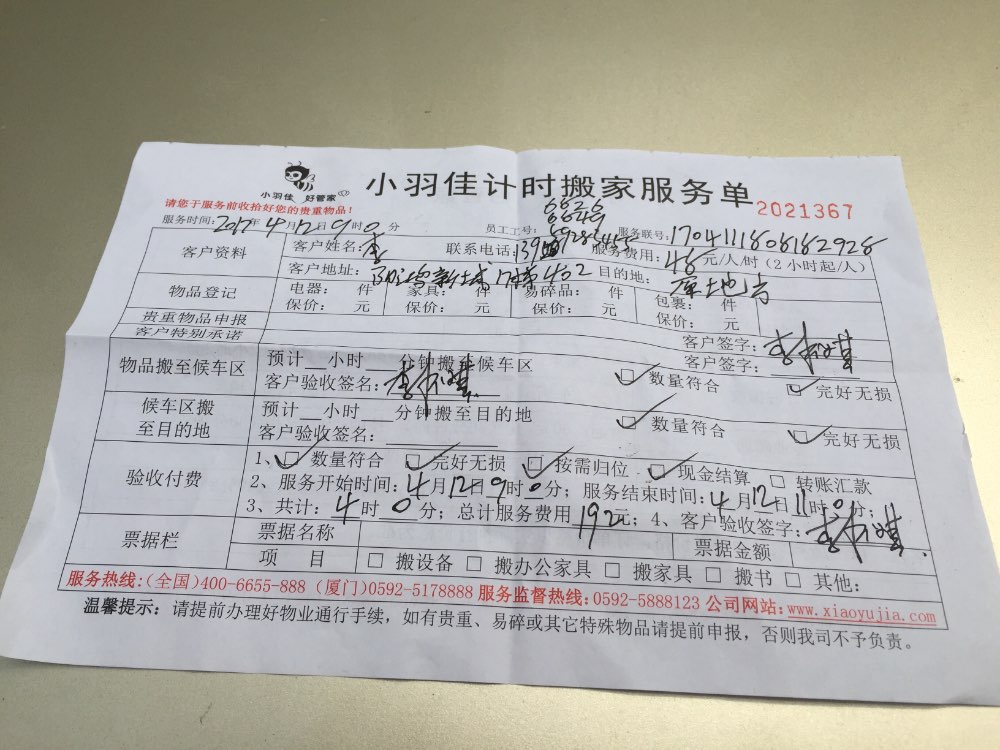 小羽佳 好管家
小羽佳计时搬家服务单 2021367
请您于服务前收拾好您的贵重物品！
6626
6649
服务时间：2017年4月12日9时0分 员工工号： 服务联号：1704111808182928
客户资料 客户姓名：李 联系电话： 服务费用：48元/人/时（2小时起/人）
客户地址： 新城 402 目的地：原地方
物品登记 电器： 件 家具： 件 易碎品： 件 包裹： 件
保价： 元 保价： 元 保价： 元 保价： 元
贵重物品申报 客户签字：
客户特别承诺 客户签字：
物品搬至候车区 预计__小时__分钟搬至候车区
客户验收签名： 数量符合 完好无损
候车区搬至目的地 预计__小时__分钟搬至目的地
客户验收签名： 数量符合 完好无损
验收付费 1、 数量符合 完好无损 按需归位 现金结算 转账汇款
2、服务开始时间：4月12日9时0分；服务结束时间：4月12日11时0分；
3、共计：4时0分；总计服务费用192元；4、客户验收签字：
票据栏 票据名称 票据金额
项 目 搬设备 搬办公家具 搬家具 搬书 其他：
服务热线：（全国）400-6655-888（厦门）0592-5178888 服务监督热线：0592-5888123 公司网站：www.xiaoyujia.com
温馨提示：请提前办理好物业通行手续，如有贵重、易碎或其它特殊物品请提前申报，否则我司不予负责。